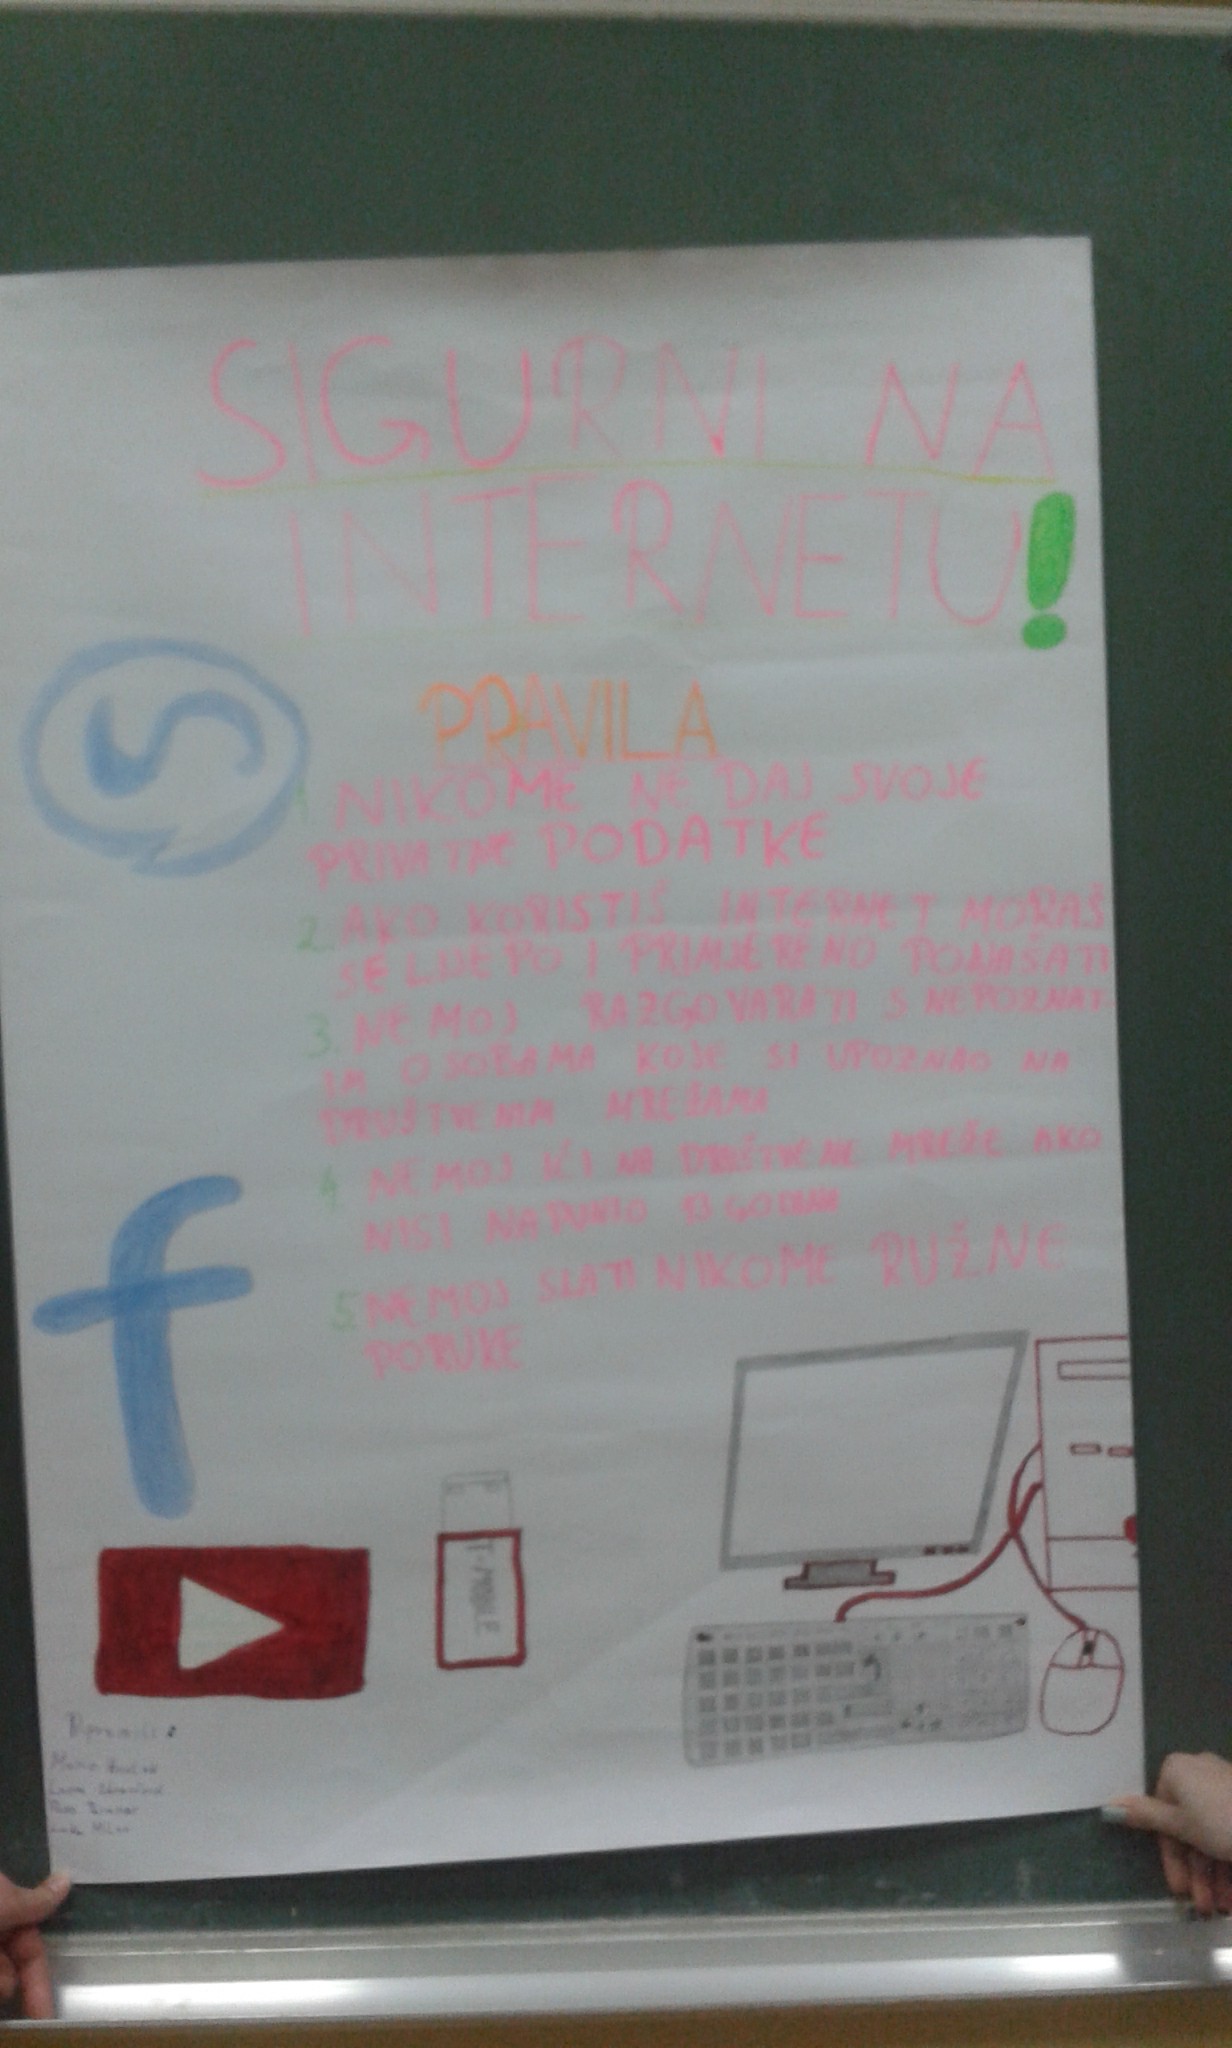 SIGURNI NA
INTERNETU!
PRAVILA
1 NIKOME NE DAJ SVOJE
PRIVATNE PODATKE
2. AKO KORISTIŠ INTERNET MORAŠ
SE LIJEPO I PRIMJERENO PONAŠATI
3. NEMOJ RAZGOVARATI S NEPOZNAT-
IM OSOBAMA KOJE SI UPOZNAO NA
DRUŠTVENIM MREŽAMA
4 NEMOJ IĆI NA DRUŠTVENE MREŽE AKO
NISI NAPUNIO 13 GODINA
5. NEMOJ SLATI NIKOME RUŽNE
PORUKE
T-MOBILE